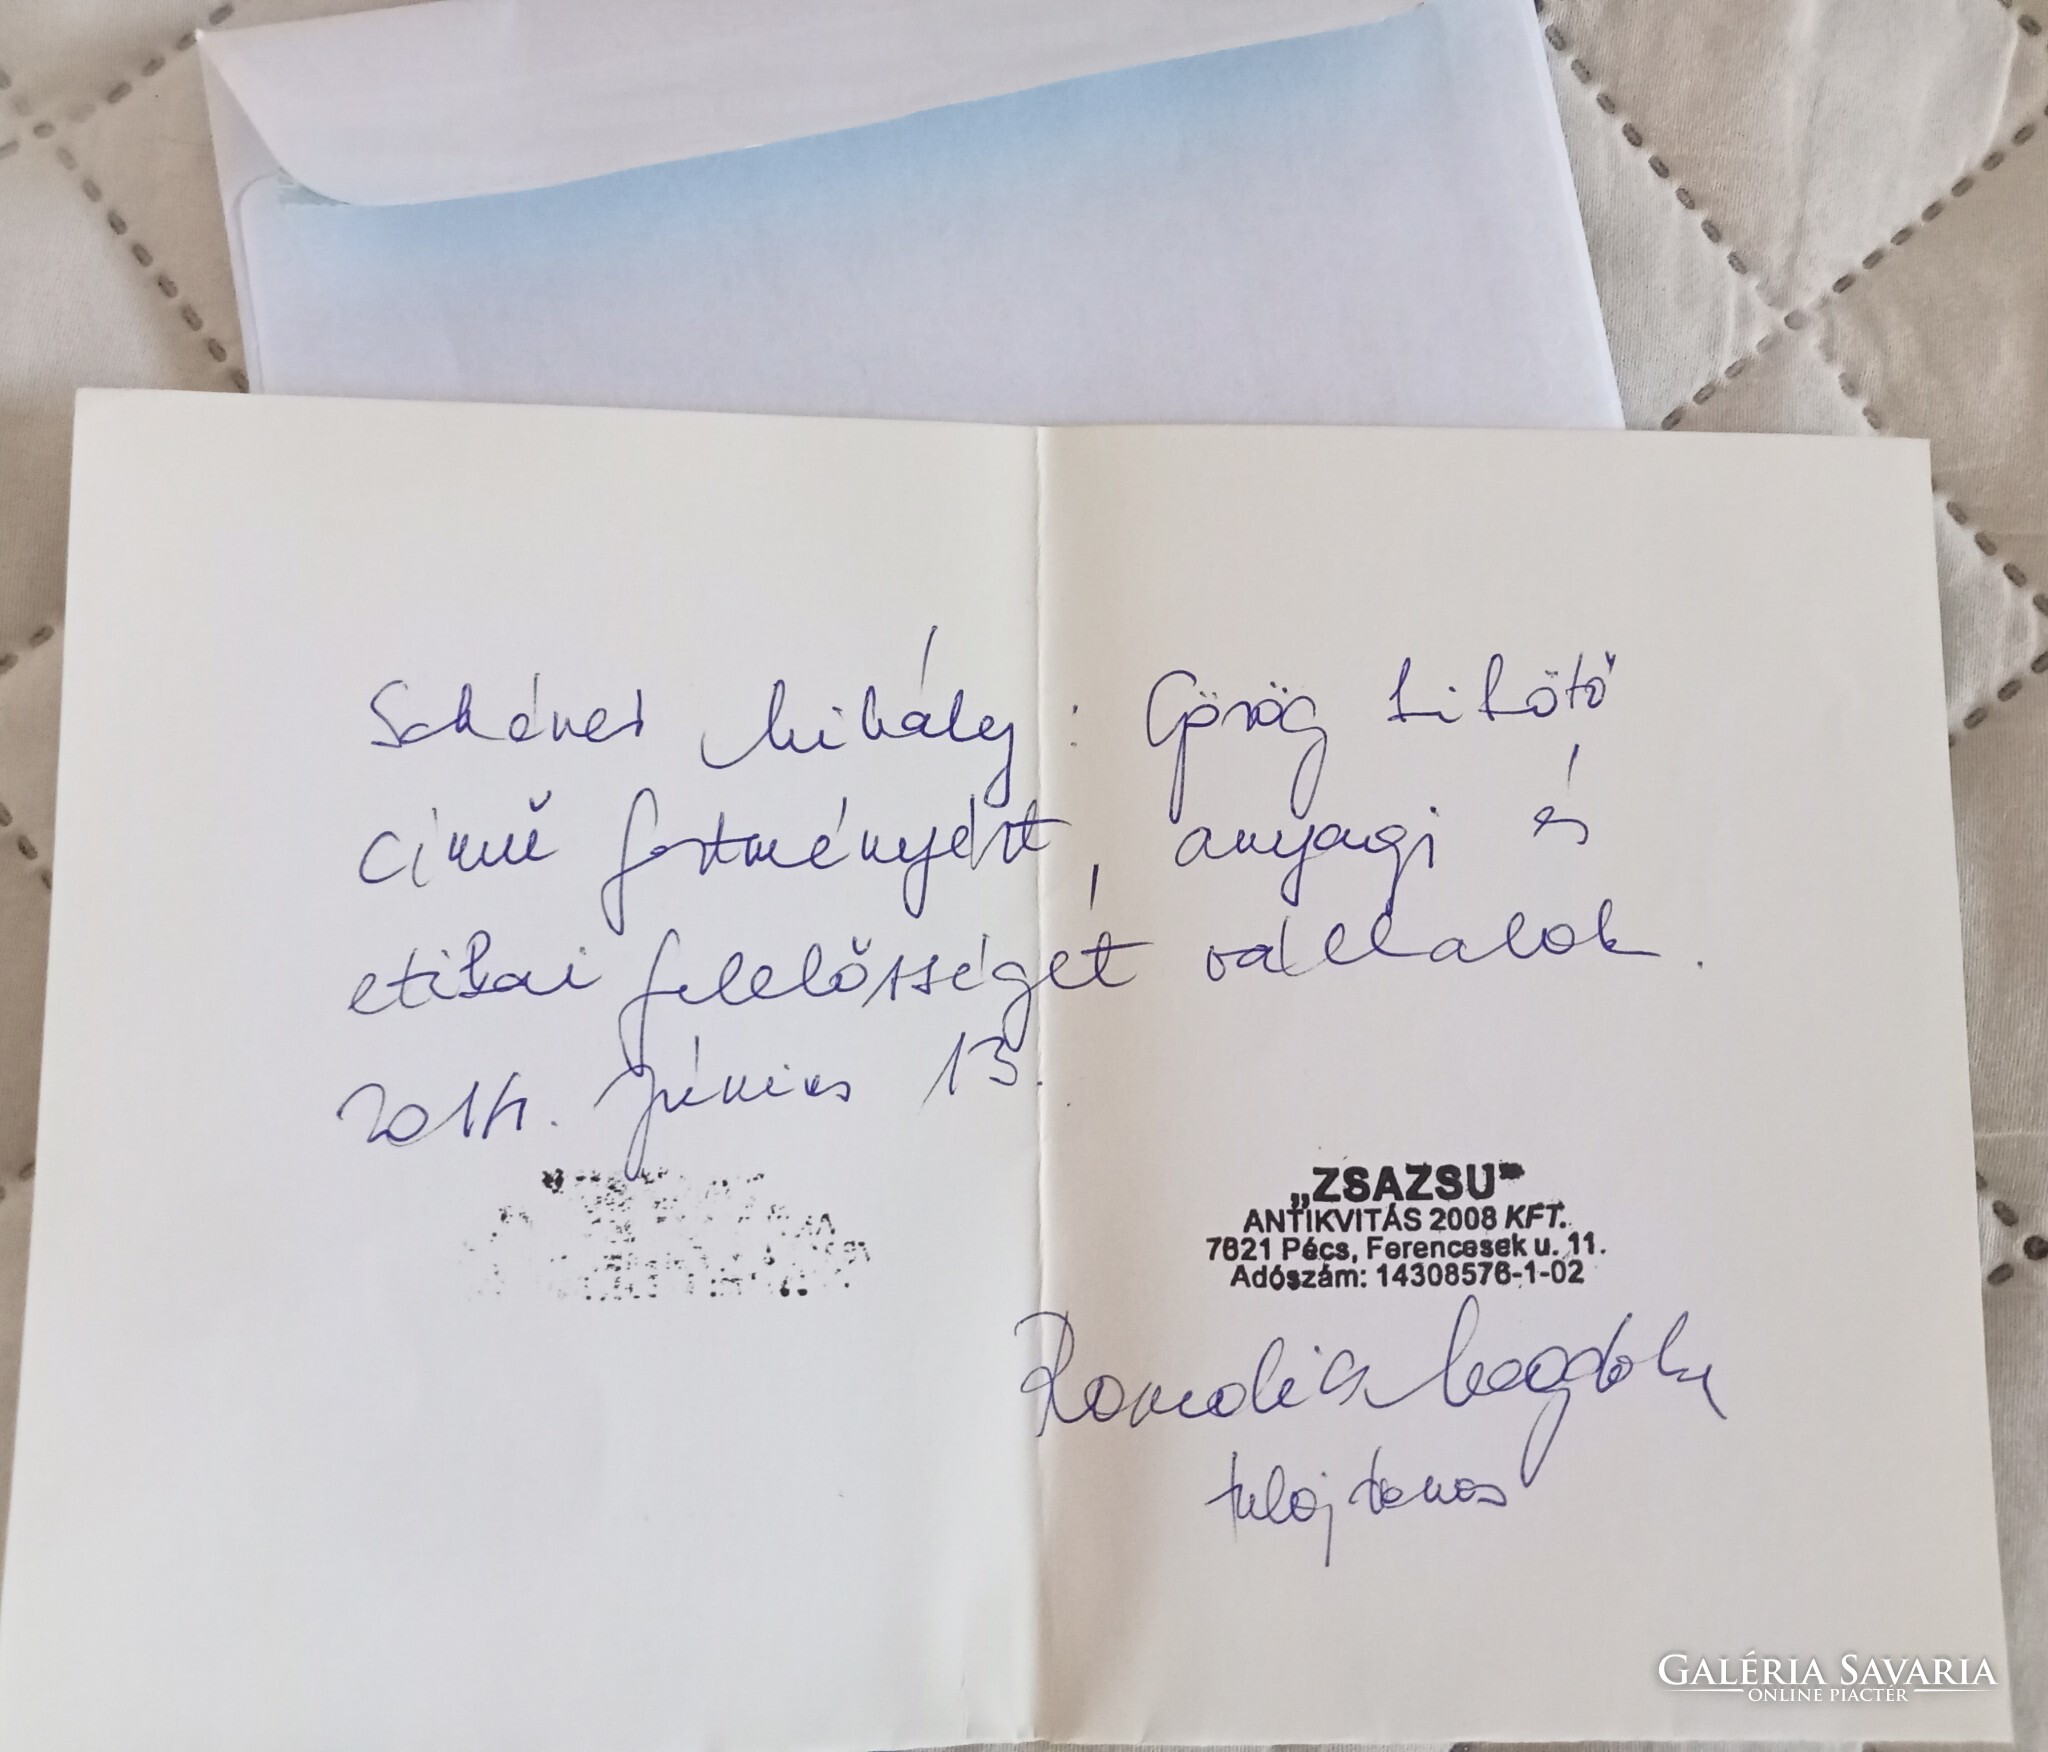 Schéner Mihály: Görög kikötő
című festményért, anyagi és
etikai felelősséget vállalok.
2014. június 13.
„ZSAZSU"
ANTIKVITÁS 2008 KFT.
7621 Pécs, Ferencesek u. 11.
Adószám: 14308576-1-02
Magdolna
tulajdonos
GALÉRIA SAVARIA
ONLINE PIACTÉR